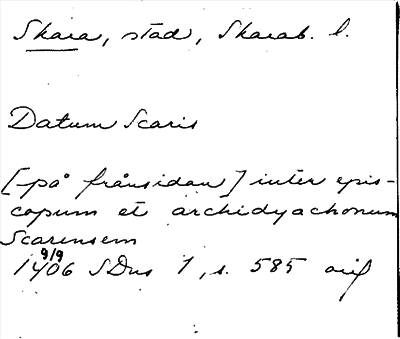 Skara, stad, Skarab. l.
Datum Scaris
[på frånsidan] inter epis-
copum et archidyachonum
Scarensem
9/9
1406 SDns 1, s. 585 avs